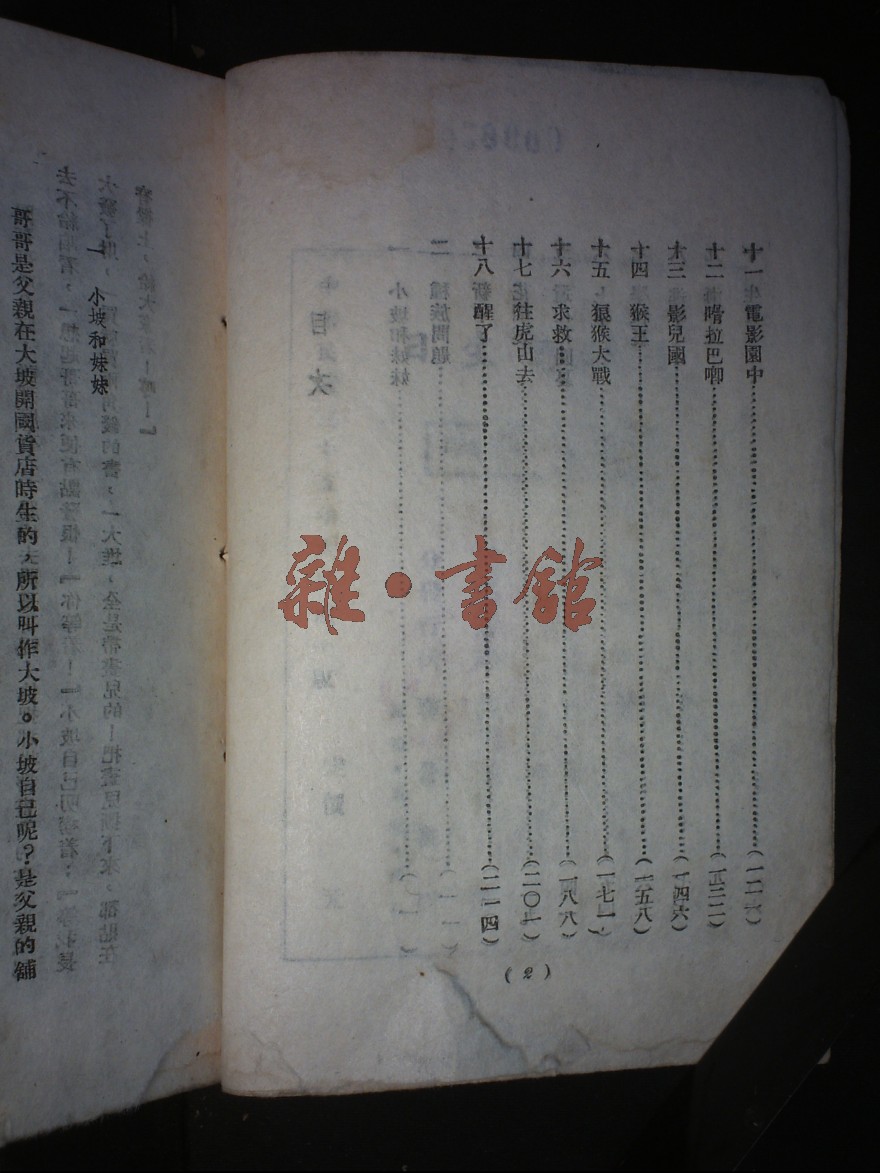 十一 電影園中……(一二六)
十二 拉巴唧……
十三 影兒國……(一四六)
十四 猴王……(一五八)
十五 狼猴大戰……(一七一)
十六 求救……(一八八)
十七 往虎山去……(二〇一)
十八 醒了……(二一四)
(2)
一 小坡和妹妹
哥哥是父親在大坡開國貨店時生的,所以叫作大坡。小坡自己呢?是父親的舖
雜·書館